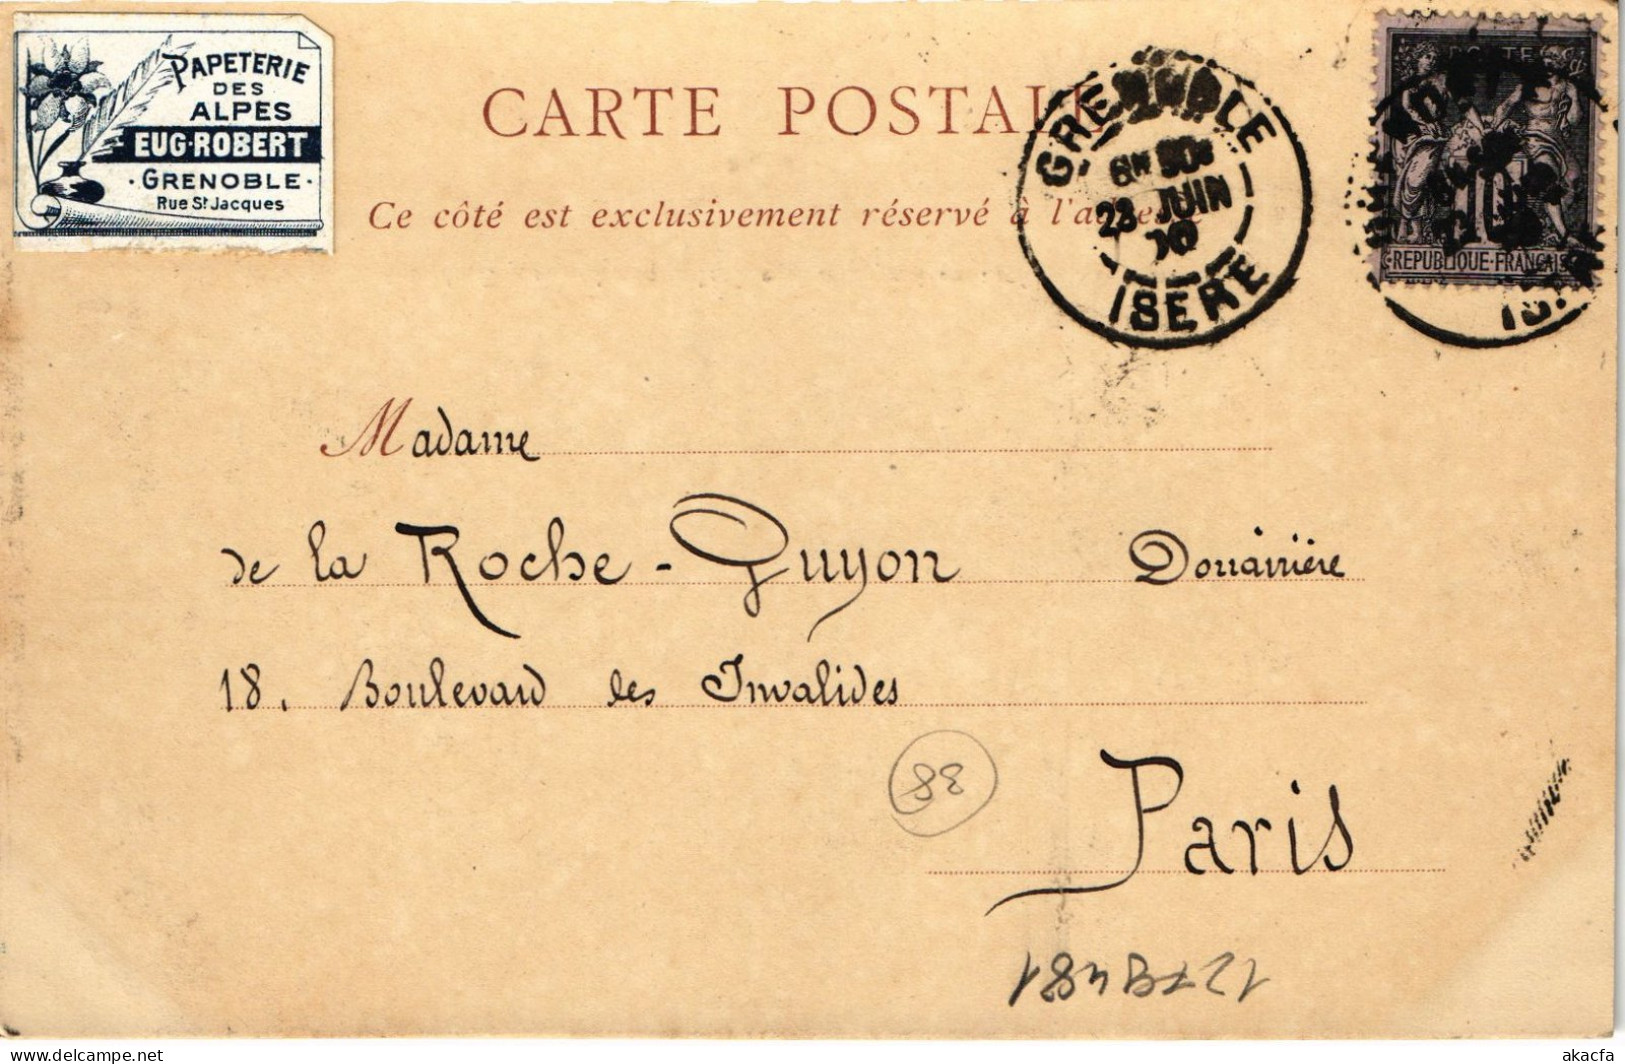 PAPETERIE
DES
ALPES
EUG·ROBERT
·GRENOBLE·
Rue St Jacques
CARTE POSTALE
Ce côté est exclusivement réservé à l'adresse
GRENOBLE
23 JUIN
ISERE
POSTE
10
REPUBLIQUE·FRANÇAISE
Madame
de la Roche-Guyon Douairière
18. Boulevard des Invalides
88
Paris
akacfa
delcampe.net